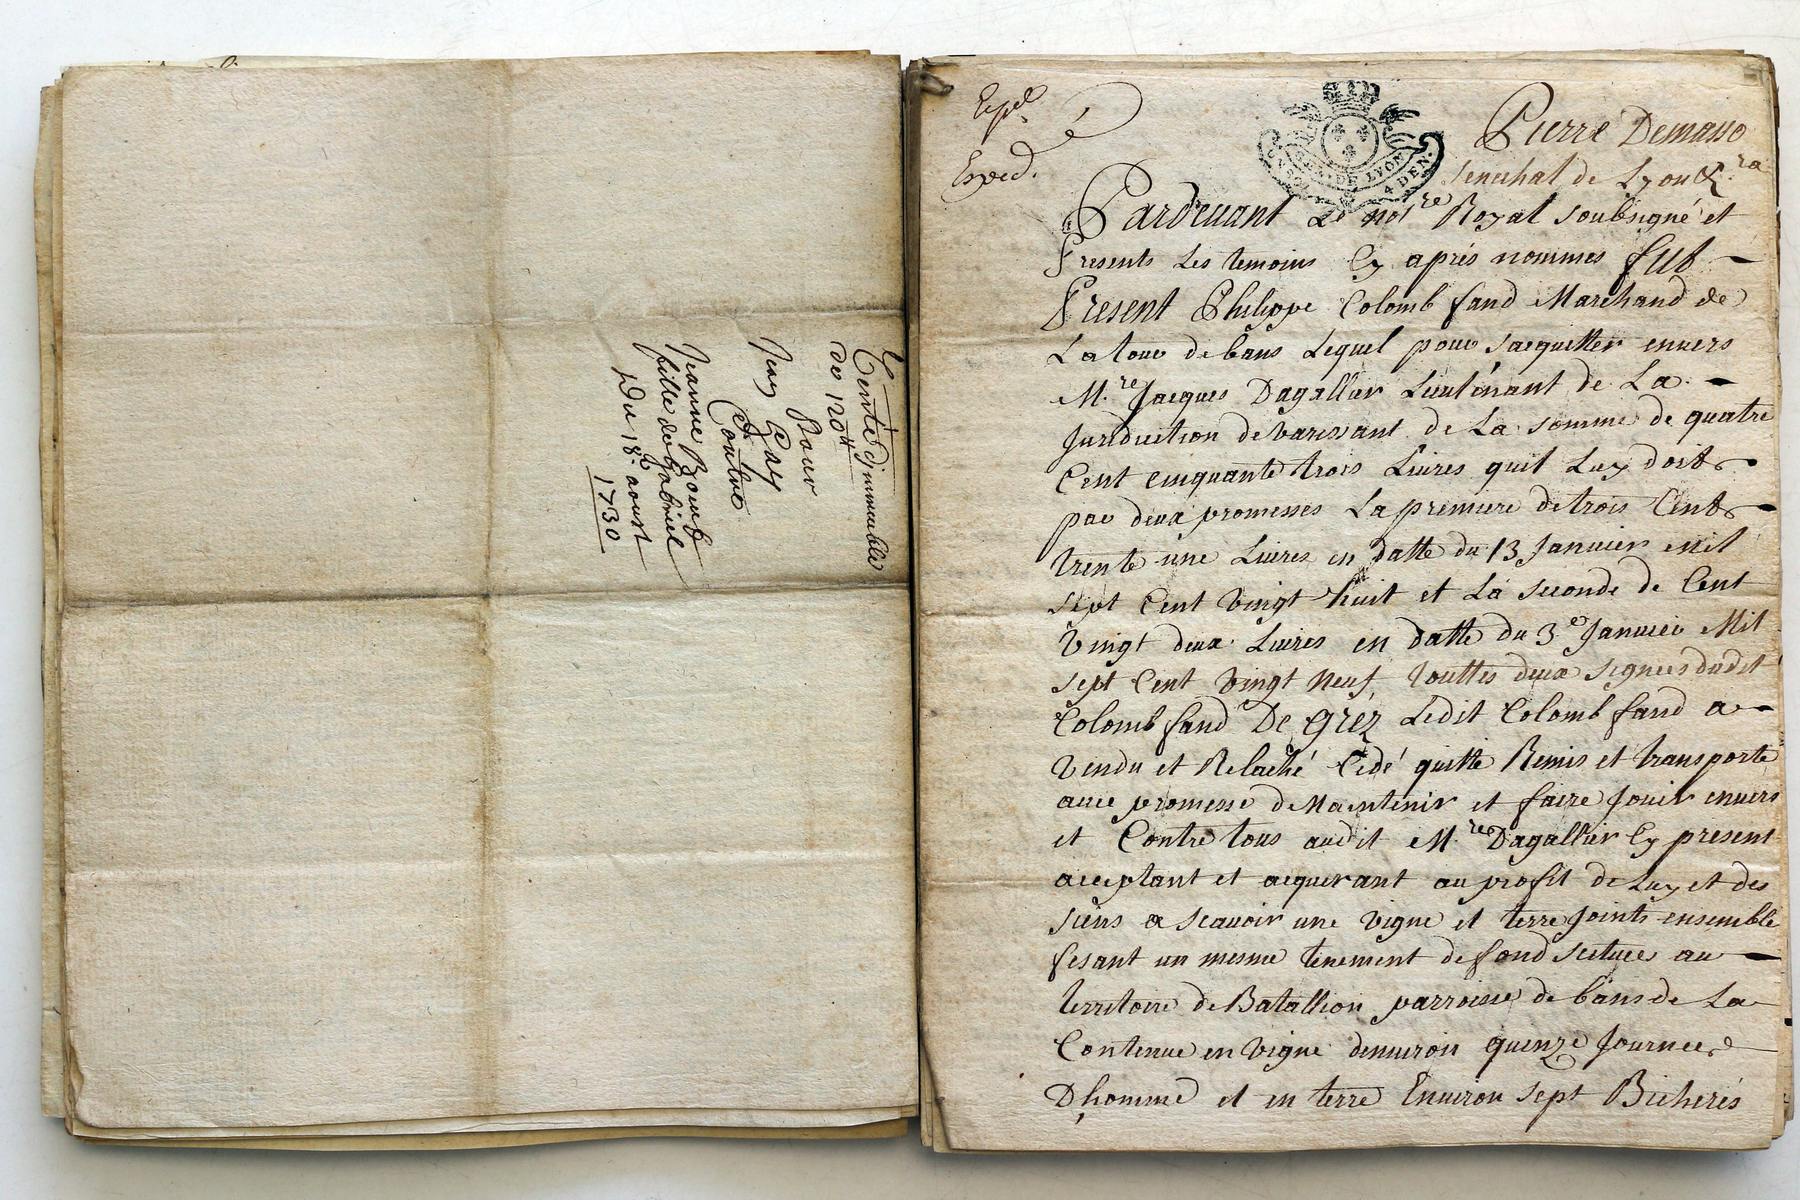 Vente d'jmmeuble
de 120 ₶
Pour
Jean
Contre
Jeanne
fille de Gabriel
Du 18.e aoust
1730
Exped.
GEN. DE LYON
4 DEN.
Pierre Demasso
Senechal de Lyon &.ra
Pardeuant Le no.re Royal soubsigné et
Presents Les temoins Cy aprés nommes fut
Present Philippe Colomb fand Marchand de
La tour de bans Lequel pour sacquitter enuers
M.re Jacques Dagallier Lieutenant de La
Jurisdiction de varissant de La somme de quatre
Cent cinquante trois Liures quil Luy doit
par deux promesses La premiere de trois Cents
trente une Liures en datte du 13 Januier mil
sept Cent vingt huit et La seconde de Cent
vingt deux Liures en datte du 3.e Januier Mil
sept Cent vingt neuf touttes deux signees dudit
Colomb fand De grez Ledit Colomb fand a
vendu et Relaché Cedé quitté Remis et transporté
auec promesse de Maintenir et faire Jouir enuers
et Contre tous audit M.re Dagallier Cy present
acceptant et acquerant au profit de Luy et des
siens a scauoir une vigne et terre Joints ensemble
fesant un mesme tenement de fond scituée au
territoire de Batallion parroisse de bans de La
Contenue en vigne denuiron quinze Journees
Dhomme et en terre Enuiron sept Bicherés